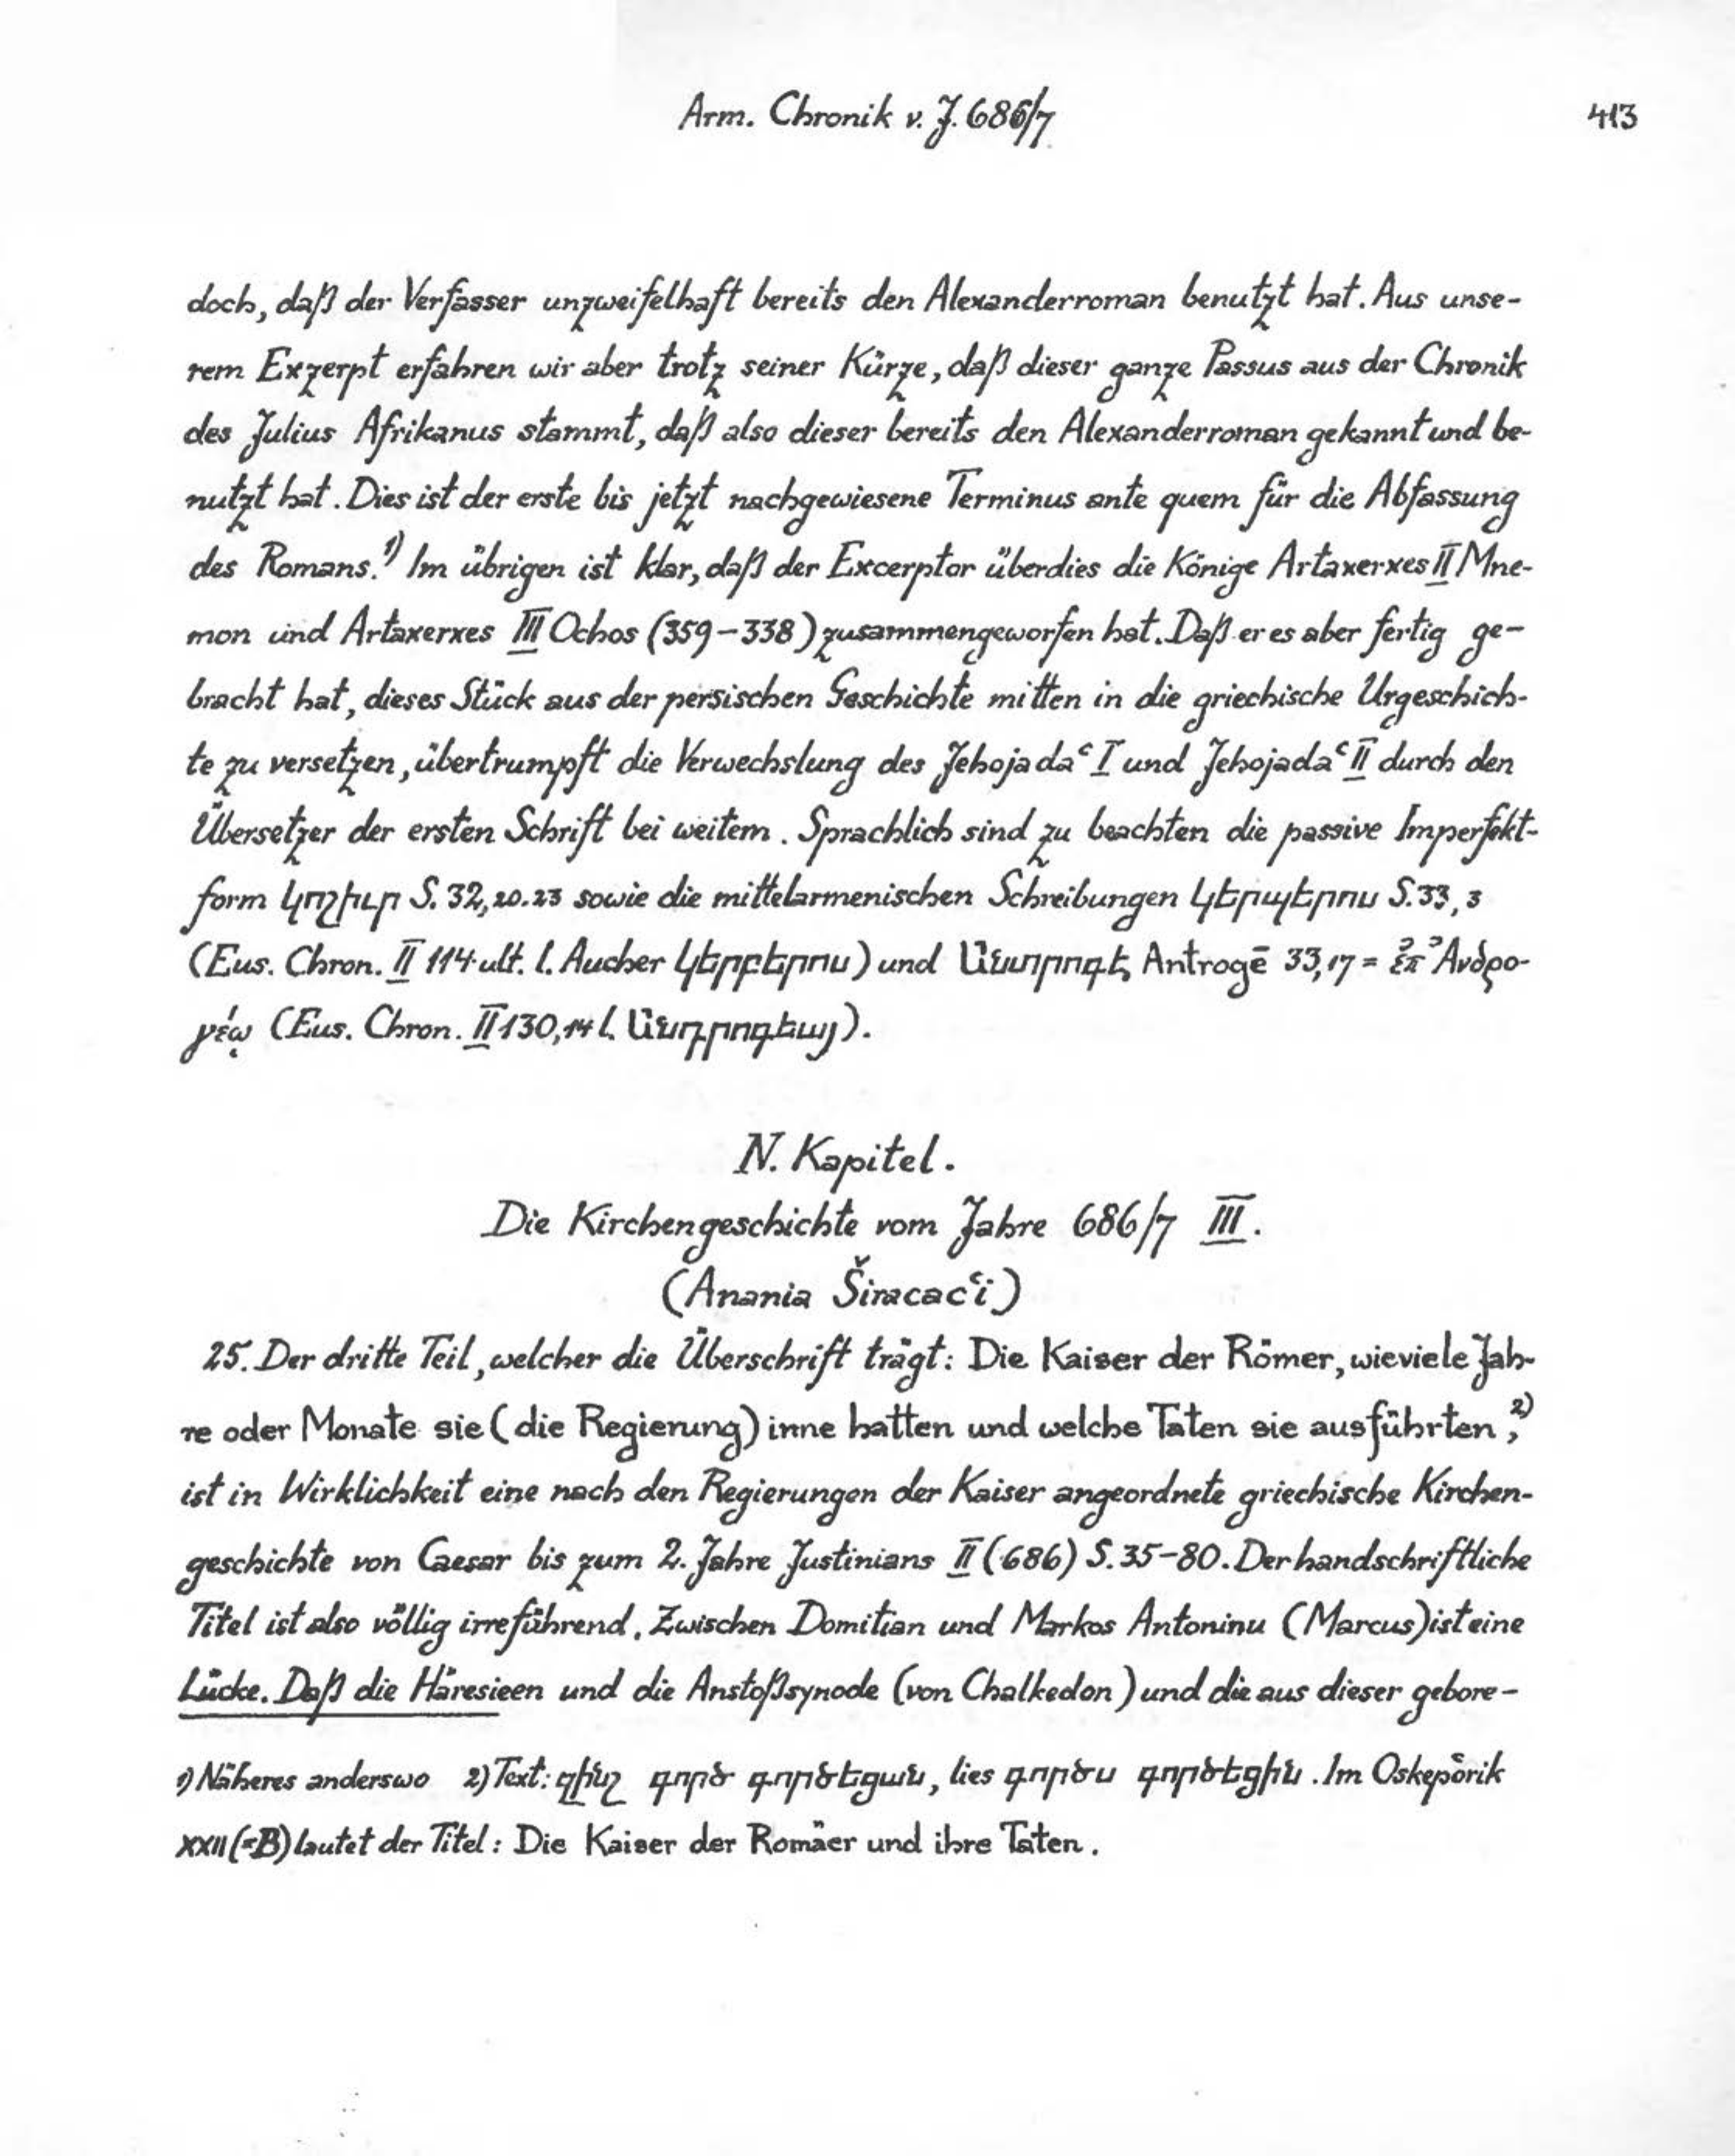 Arm. Chronik v. J. 686/7
413
doch, daß der Verfasser unzweifelhaft bereits den Alexanderroman benutzt hat. Aus unse-
rem Exzerpt erfahren wir aber trotz seiner Kürze, daß dieser ganze Passus aus der Chronik
des Julius Afrikanus stammt, daß also dieser bereits den Alexanderroman gekannt und be-
nutzt hat. Dies ist der erste bis jetzt nachgewiesene Terminus ante quem für die Abfassung
des Romans.¹⁾ Im übrigen ist klar, daß der Excerptor überdies die Könige Artaxerxes II Mne-
mon und Artaxerxes III Ochos (359-338) zusammengeworfen hat. Daß er es aber fertig ge-
bracht hat, dieses Stück aus der persischen Geschichte mitten in die griechische Urgeschich-
te zu versetzen, übertrumpft die Verwechslung des Jehojadaʿ I und Jehojadaʿ II durch den
Übersetzer der ersten Schrift bei weitem. Sprachlich sind zu beachten die passive Imperfekt-
form կոչիւր S. 32, 20.23 sowie die mittelarmenischen Schreibungen կերպերոս S. 33, 3
(Eus. Chron. II 114 ult. l. Aucher կերբերոս) und Անտրոգէ Antrogē 33, 17 = ἐπ᾽ Ἀνδρο-
γέῳ (Eus. Chron. II 130, 14 l. Անդրոգեայ).
IV. Kapitel.
Die Kirchengeschichte vom Jahre 686/7 III.
(Anania Širacacʿi)
25. Der dritte Teil, welcher die Überschrift trägt: Die Kaiser der Römer, wieviele Jah-
re oder Monate sie (die Regierung) inne hatten und welche Taten sie ausführten,²⁾
ist in Wirklichkeit eine nach den Regierungen der Kaiser angeordnete griechische Kirchen-
geschichte von Caesar bis zum 2. Jahre Justinians II (686) S. 35-80. Der handschriftliche
Titel ist also völlig irreführend. Zwischen Domitian und Markos Antoninu (Marcus) ist eine
Lücke. Daß die Häresieen und die Anstoßsynode (von Chalkedon) und die aus dieser gebore-
1) Näheres anderswo 2) Text: զինչ գործ գործեցան, lies գործս գործեցին. Im Oskepʿorik
XXII (=B) lautet der Titel: Die Kaiser der Romäer und ihre Taten.